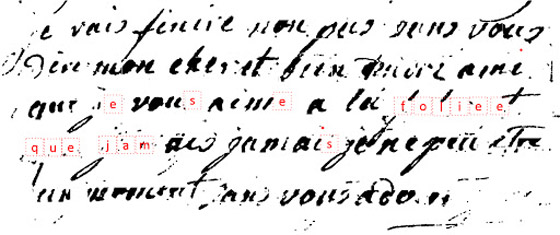 je vais finire non pas sans vous
dire mon cher et bien aimé ami
que je vous aime a la foliee et
que jamais jamais je ne peu être
un moment sans vous adorer